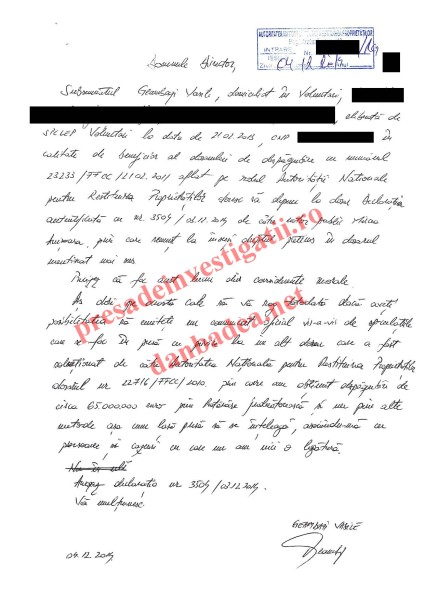 AUTORITATEA NAȚIONALĂ PENTRU RESTITUIREA PROPRIETĂȚILOR
INTRARE Nr.
Domnule Director,
Subsemnatul Geambazi Vasile, domiciliat în Voluntari,
eliberată de
SPCLEP Voluntari la data de 21.02.2013, CNP în
calitate de beneficiar al dosarului de despăgubire cu numărul
23233/FFCC/21.02.2011 aflat pe rolul Autorității Naționale
pentru Restituirea Proprietăților doresc să depun la dosar Declarația
autentificată cu nr. 3509/03.12.2014 de către notar public
prin care renunț la însuși dreptul pretins în dosarul
menționat mai sus.
Precizez că fac acest lucru din considerente morale.
Aș dori pe această cale să vă rog totodată dacă aveți
posibilitatea să emiteți un comunicat oficial vis-a-vis de speculațiile
care se fac în presă cu privire la un alt dosar care a fost
soluționat de către Autoritatea Națională pentru Restituirea Proprietăților
dosarul nr. 22716/FFCC/2010, prin care am obținut despăgubiri de
circa 65.000.000 euro prin hotărâre judecătorească și nu prin alte
metode așa cum lasă presa să se înțeleagă, asociindu-mă cu
persoane și cazuri cu care nu am nici o legătură.
Anexez declarația nr. 3509/03.12.2014.
Vă mulțumesc.
GEAMBAZI VASILE
04.12.2014
presadeinvestigatii.ro
danbadea.net